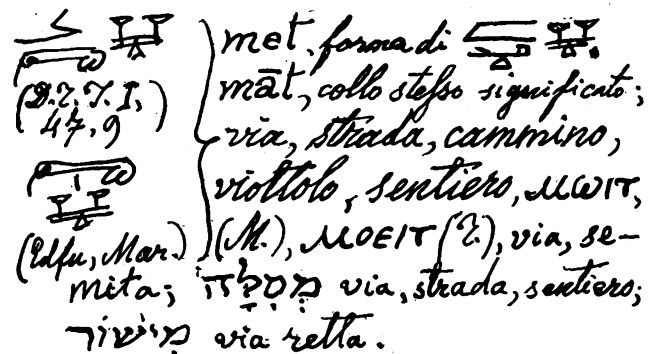 met, forma di
māt, collo stesso significato;
47,9)
via, strada, cammino,
viottolo, sentiero, ⲙⲱⲓⲧ,
(Edfu, Mar.) (M.), ⲙⲟⲉⲓⲧ (T.), via, se-
mita; מְסִלָּה via, strada, sentiero;
מִישׁוֹר via retta.